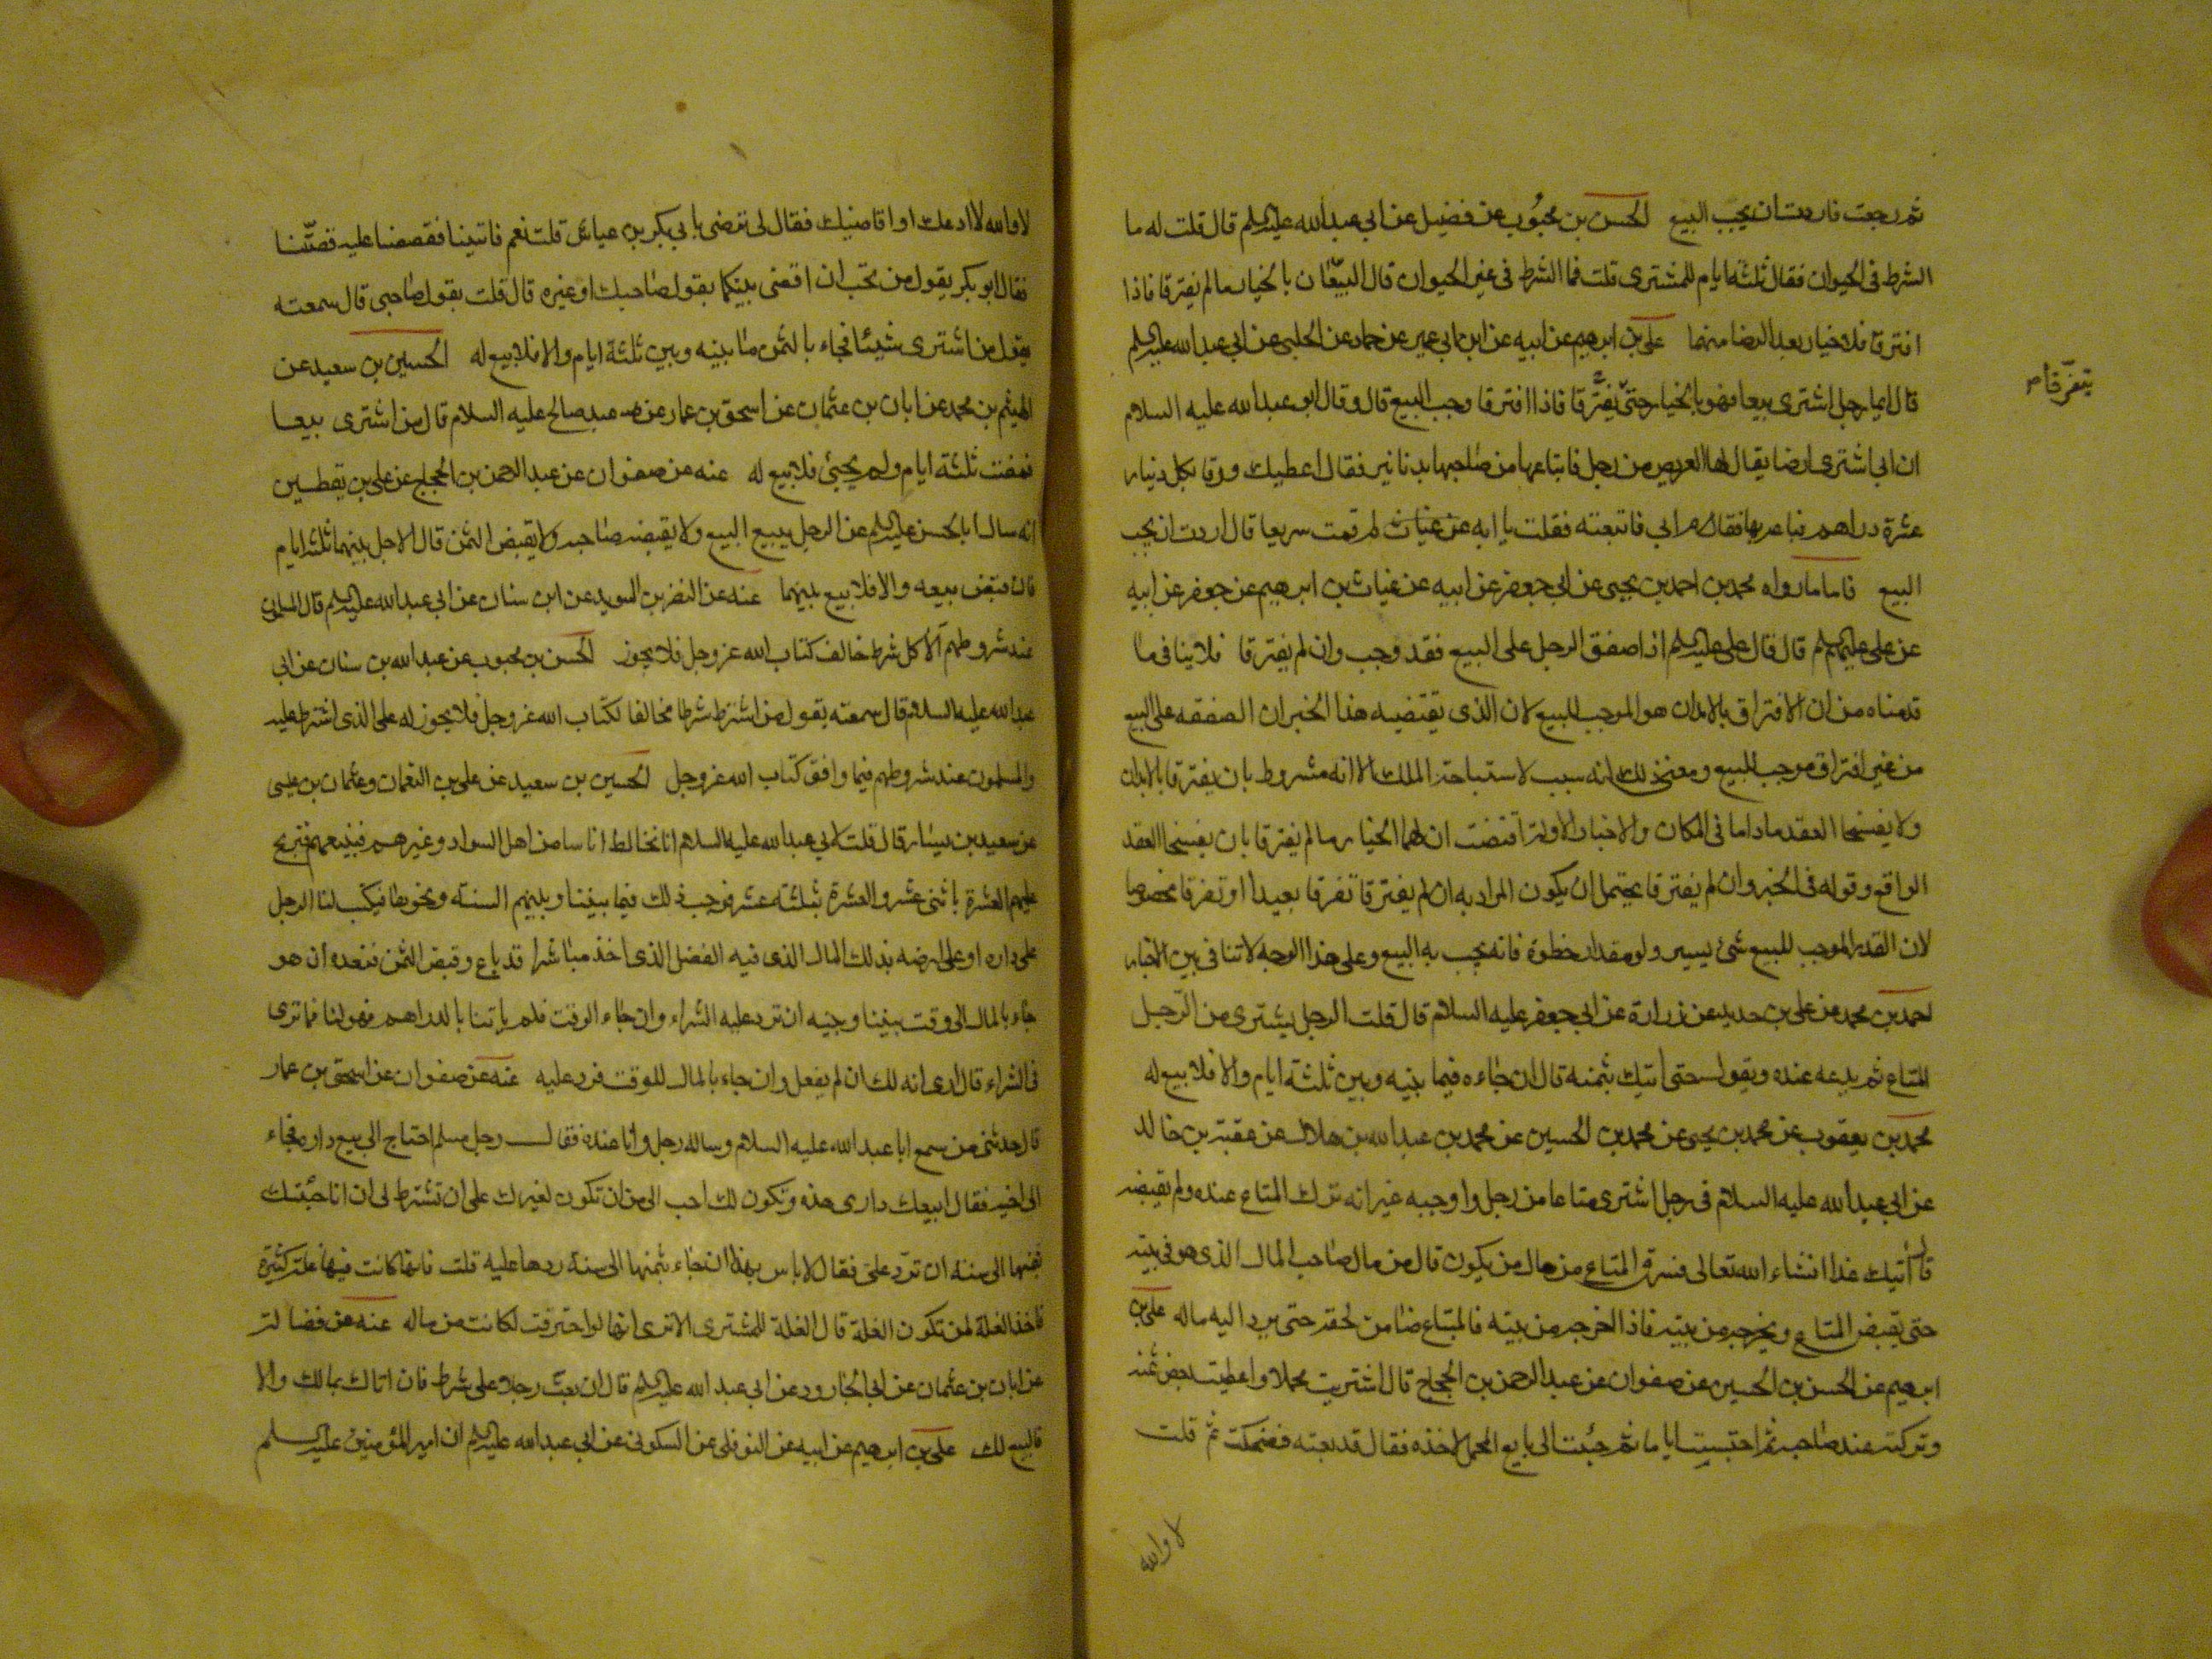 ثم رجعت فاردت ان يجب البيع الحسن بن محبوب عن فضيل عن ابي عبد الله عليه السلم قال قلت له ما
الشرط في الحيوان فقال ثلثة ايام للمشتري قلت فما الشرط في غير الحيوان قال البيّعان بالخيار ما لم يفترقا فاذا
افترقا فلا خيار بعد الرضا منهما علي بن ابرهيم عن ابيه عن ابن ابي عمير عن حماد عن الحلبي عن ابي عبد الله عليه السلم
قال ايما رجل اشترى بيعا فهو بالخيار حتى يفترقا فاذا افترقا وجب البيع قال وقال ابو عبد الله عليه السلام
يتفرّقا م
ان ابي اشترى ارضا يقال لها العريض من رجل فابتاعها من صاحبها بدنانير فقال اعطيك ورقا بكل دينار
عشرة دراهم فباعه بها فقام ابي فاتبعته فقلت يا ابه لم قمت سريعا قال اردت ان يجب
البيع فاما ما رواه محمد بن احمد بن يحيى عن ابي جعفر عن ابيه عن غياث بن ابرهيم عن جعفر عن ابيه
عن علي عليهم السلم قال قال علي عليه السلم اذا صفق الرجل على البيع فقد وجب وان لم يفترقا فلا ينافي ما
قدمناه من ان الافتراق بالابدان هو الموجب للبيع لان الذي يقتضيه هذا الخبر ان الصفقه على البيع
من غير افتراق موجب للبيع ومعنى ذلك انه سبب لاستباحة الملك الا انه مشروط بان يفترقا بالابدان
ولا يفسخا العقد ما داما في المكان والاخبار الاولة اقتضت ان لهما الخيار ما لم يفترقا بان يفسخا العقد
الواقع وقوله في الخبر وان لم يفترقا يحتمل ان يكون المراد به ان لم يفترقا تفرقا بعيدا او تفرقا مخصوصا
لان القدر الموجب للبيع شئ يسير ولو مقدار خطوة فانه يجب به البيع وعلى هذا الوجه لا تنافي بين الاخبار
احمد بن محمد عن علي بن حديد عن زرارة عن ابي جعفر عليه السلام قال قلت الرجل يشتري من الرّجل
المتاع ثم يدعه عنده ويقول حتى اتيك بثمنه قال ان جاء ه فيما بينه وبين ثلثة ايام والا فلا بيع له
محمد بن يعقوب عن محمد بن يحيى عن محمد بن الحسين عن محمد بن عبد الله بن هلال عن عقبة بن خالد
عن ابي عبد الله عليه السلام في رجل اشترى متاعا من رجل واوجبه غير انه ترك المتاع عنده ولم يقبضه
قال آتيك غدا انشاء الله تعالى فسرق المتاع من مال من يكون قال من مال صاحب المال الذي هو في بيته
حتى يقبض المتاع ويخرجه من بيته فاذا اخرجه من بيته فالمبتاع ضامن لحقه حتى يرد اليه ماله علي بن
ابرهيم عن الحسن بن الحسين عن صفوان عن عبد الرحمن بن الحجاج قال اشتريت محملا واعطيت بعض ثمنه
وتركته عند صاحبه ثم احتبست اياما ثم جئت الى بايع المحمل لاخذه فقال قد بعته فضحكت ثم قلت
لا والله
لا والله لا ادعك او اقاضيك فقال لي ترضى بابي بكر بن عياش قلت نعم فاتينا فقصصنا عليه قصّتنا
فقال ابو بكر يقول من تحب ان اقضى بينكما بقول صاحبك او غيره قال قلت بقول صاحبي قال سمعته
يقول من اشترى شيئا فجاء بالثمن ما بينه وبين ثلثة ايام والا فلا بيع له الحسين بن سعيد عن
الهيثم بن محمد عن ابان بن عثمان عن اسحق بن عمار عن عبد صالح عليه السلام قال من اشترى بيعا
فمضت ثلثة ايام ولم يجئ فلا بيع له عنه عن صفوان عن عبد الرحمن بن الحجاج عن علي بن يقطين
انه سال ابا الحسن عليه السلم عن الرجل يبيع البيع ولا يقبضه صاحبه ولا يقبض الثمن قال الاجل بينهما ثلثة ايام
فان قبض بيعه والا فلا بيع بينهما عنه عن النضر بن السويد عن ابن سنان عن ابي عبد الله عليه السلم قال المسلمون
عند شروطهم الا كل شرط خالف كتاب الله عز وجل فلا يجوز الحسن بن محبوب عن عبد الله بن سنان عن ابي
عبد الله عليه السلام قال سمعته يقول من اشترط شرطا مخالفا لكتاب الله عز وجل فلا يجوز له على الذي اشترط عليه
والمسلمون عند شروطهم فيما وافق كتاب الله عز وجل الحسين بن سعيد عن علي بن النعمان وعثمان بن عيسى
عن سعيد بن يسار قال قلت لابي عبد الله عليه السلام انا نخالط اناسا من اهل السواد وغيرهم فنبيعهم فنربح
عليهم العشرة باثنى عشر والعشرة بثلثة عشر فوجب ذلك فيما بيننا وبينهم السنة ونحوها فيكتب لنا الرجل
على داره او على ارضه بذلك المال الذي فيه الفضل الذي اخذ منا شرا قد باع وقبض الثمن فنعده ان هو
جاء بالمال الى وقت بيننا وبينه ان نرد عليه الشراء وان جاء الوقت فلم ياتنا بالدراهم فهو لنا فما ترى
في الشراء قال ارى انه لك ان لم يفعل وان جاء بالمال للوقت فرد عليه عنه عن صفوان عن اسحق بن عمار
قال حدثني من سمع ابا عبد الله عليه السلام وساله رجل وانا عنده فقال رجل مسلم احتاج الى بيع داره فجاء
الى اخيه فقال ابيعك داري هذه وتكون لك احب الى من ان تكون لغيرك على ان تشترط لي ان انا جئتك
بثمنها الى سنة ان ترد علي فقال لا باس بهذا ان جاء بثمنها الى سنة ردها عليه قلت فانها كانت فيها غلة كثيرة
فاخذ الغلة لمن تكون الغلة قال الغلة للمشتري الا ترى انها لو احترقت لكانت من ماله عنه عن فضالة
عن ابان بن عثمان عن ابي الجارود عن ابي عبد الله عليه السلم قال ان بعت رجلا على شرط فان اتاك بمالك والا
فالبيع لك علي بن ابرهيم عن ابيه عن النوفلي عن السكوني عن ابي عبد الله عليه السلم ان امير المؤمنين عليه السلم